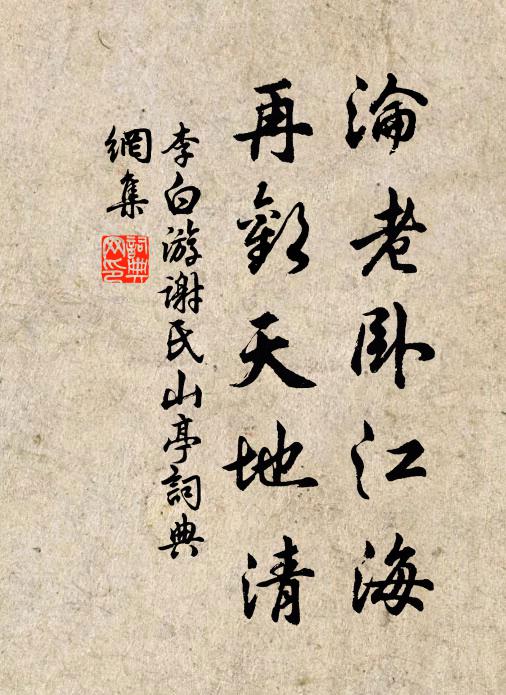 淪老臥江海
再歡天地清
李白游謝氏山亭詞典
網集
詞典
网印